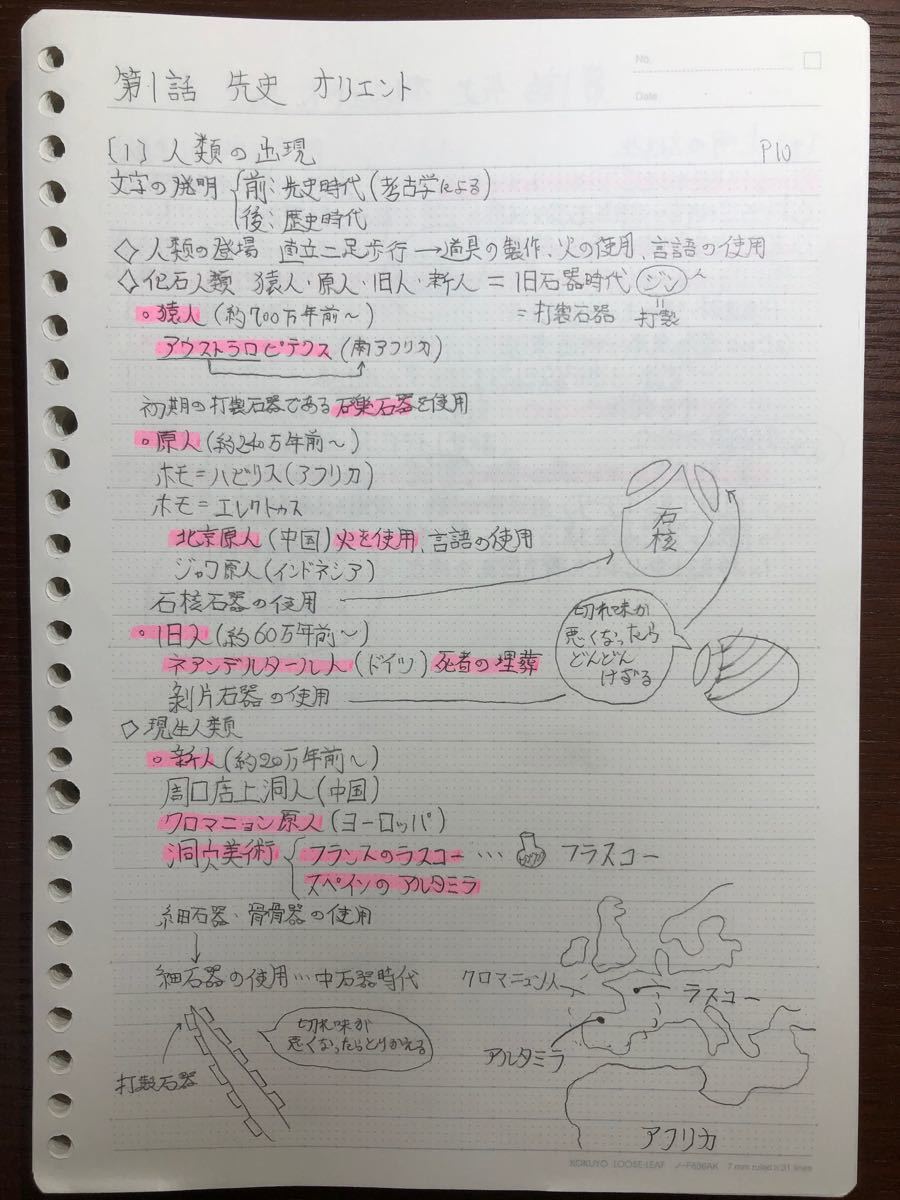 No.
Date
第1話 先史 オリエント
〔1〕人類の出現 P10
文字の発明 前：先史時代（考古学による）
後：歴史時代
◇人類の登場 直立二足歩行→道具の製作、火の使用、言語の使用
◇化石人類 猿人・原人・旧人・新人＝旧石器時代 ジン人
。猿人（約700万年前〜） ＝打製石器 打製
アウストラロピテクス（南アフリカ）
初期の打製石器である石礫石器を使用
。原人（約240万年前〜）
ホモ＝ハビリス（アフリカ）
ホモ＝エレクトゥス
石核
北京原人（中国）火を使用、言語の使用
ジャワ原人（インドネシア）
石核石器の使用
切れ味が
悪くなったら
どんどん
けずる
。旧人（約60万年前〜）
ネアンデルタール人（ドイツ）死者の埋葬
剝片石器の使用
◇現生人類
。新人（約20万年前〜）
周口店上洞人（中国）
クロマニョン原人（ヨーロッパ）
洞穴美術 フランスのラスコー … フラスコー
スペインのアルタミラ
細石器・骨骨器の使用
↓
細石器の使用…中石器時代
クロマニョン人
ラスコー
アルタミラ
アフリカ
切れ味が
悪くなったらとりかえる
打製石器
KOKUYO LOOSE-LEAF ノ-F836AK 7 mm ruled x 31 lines